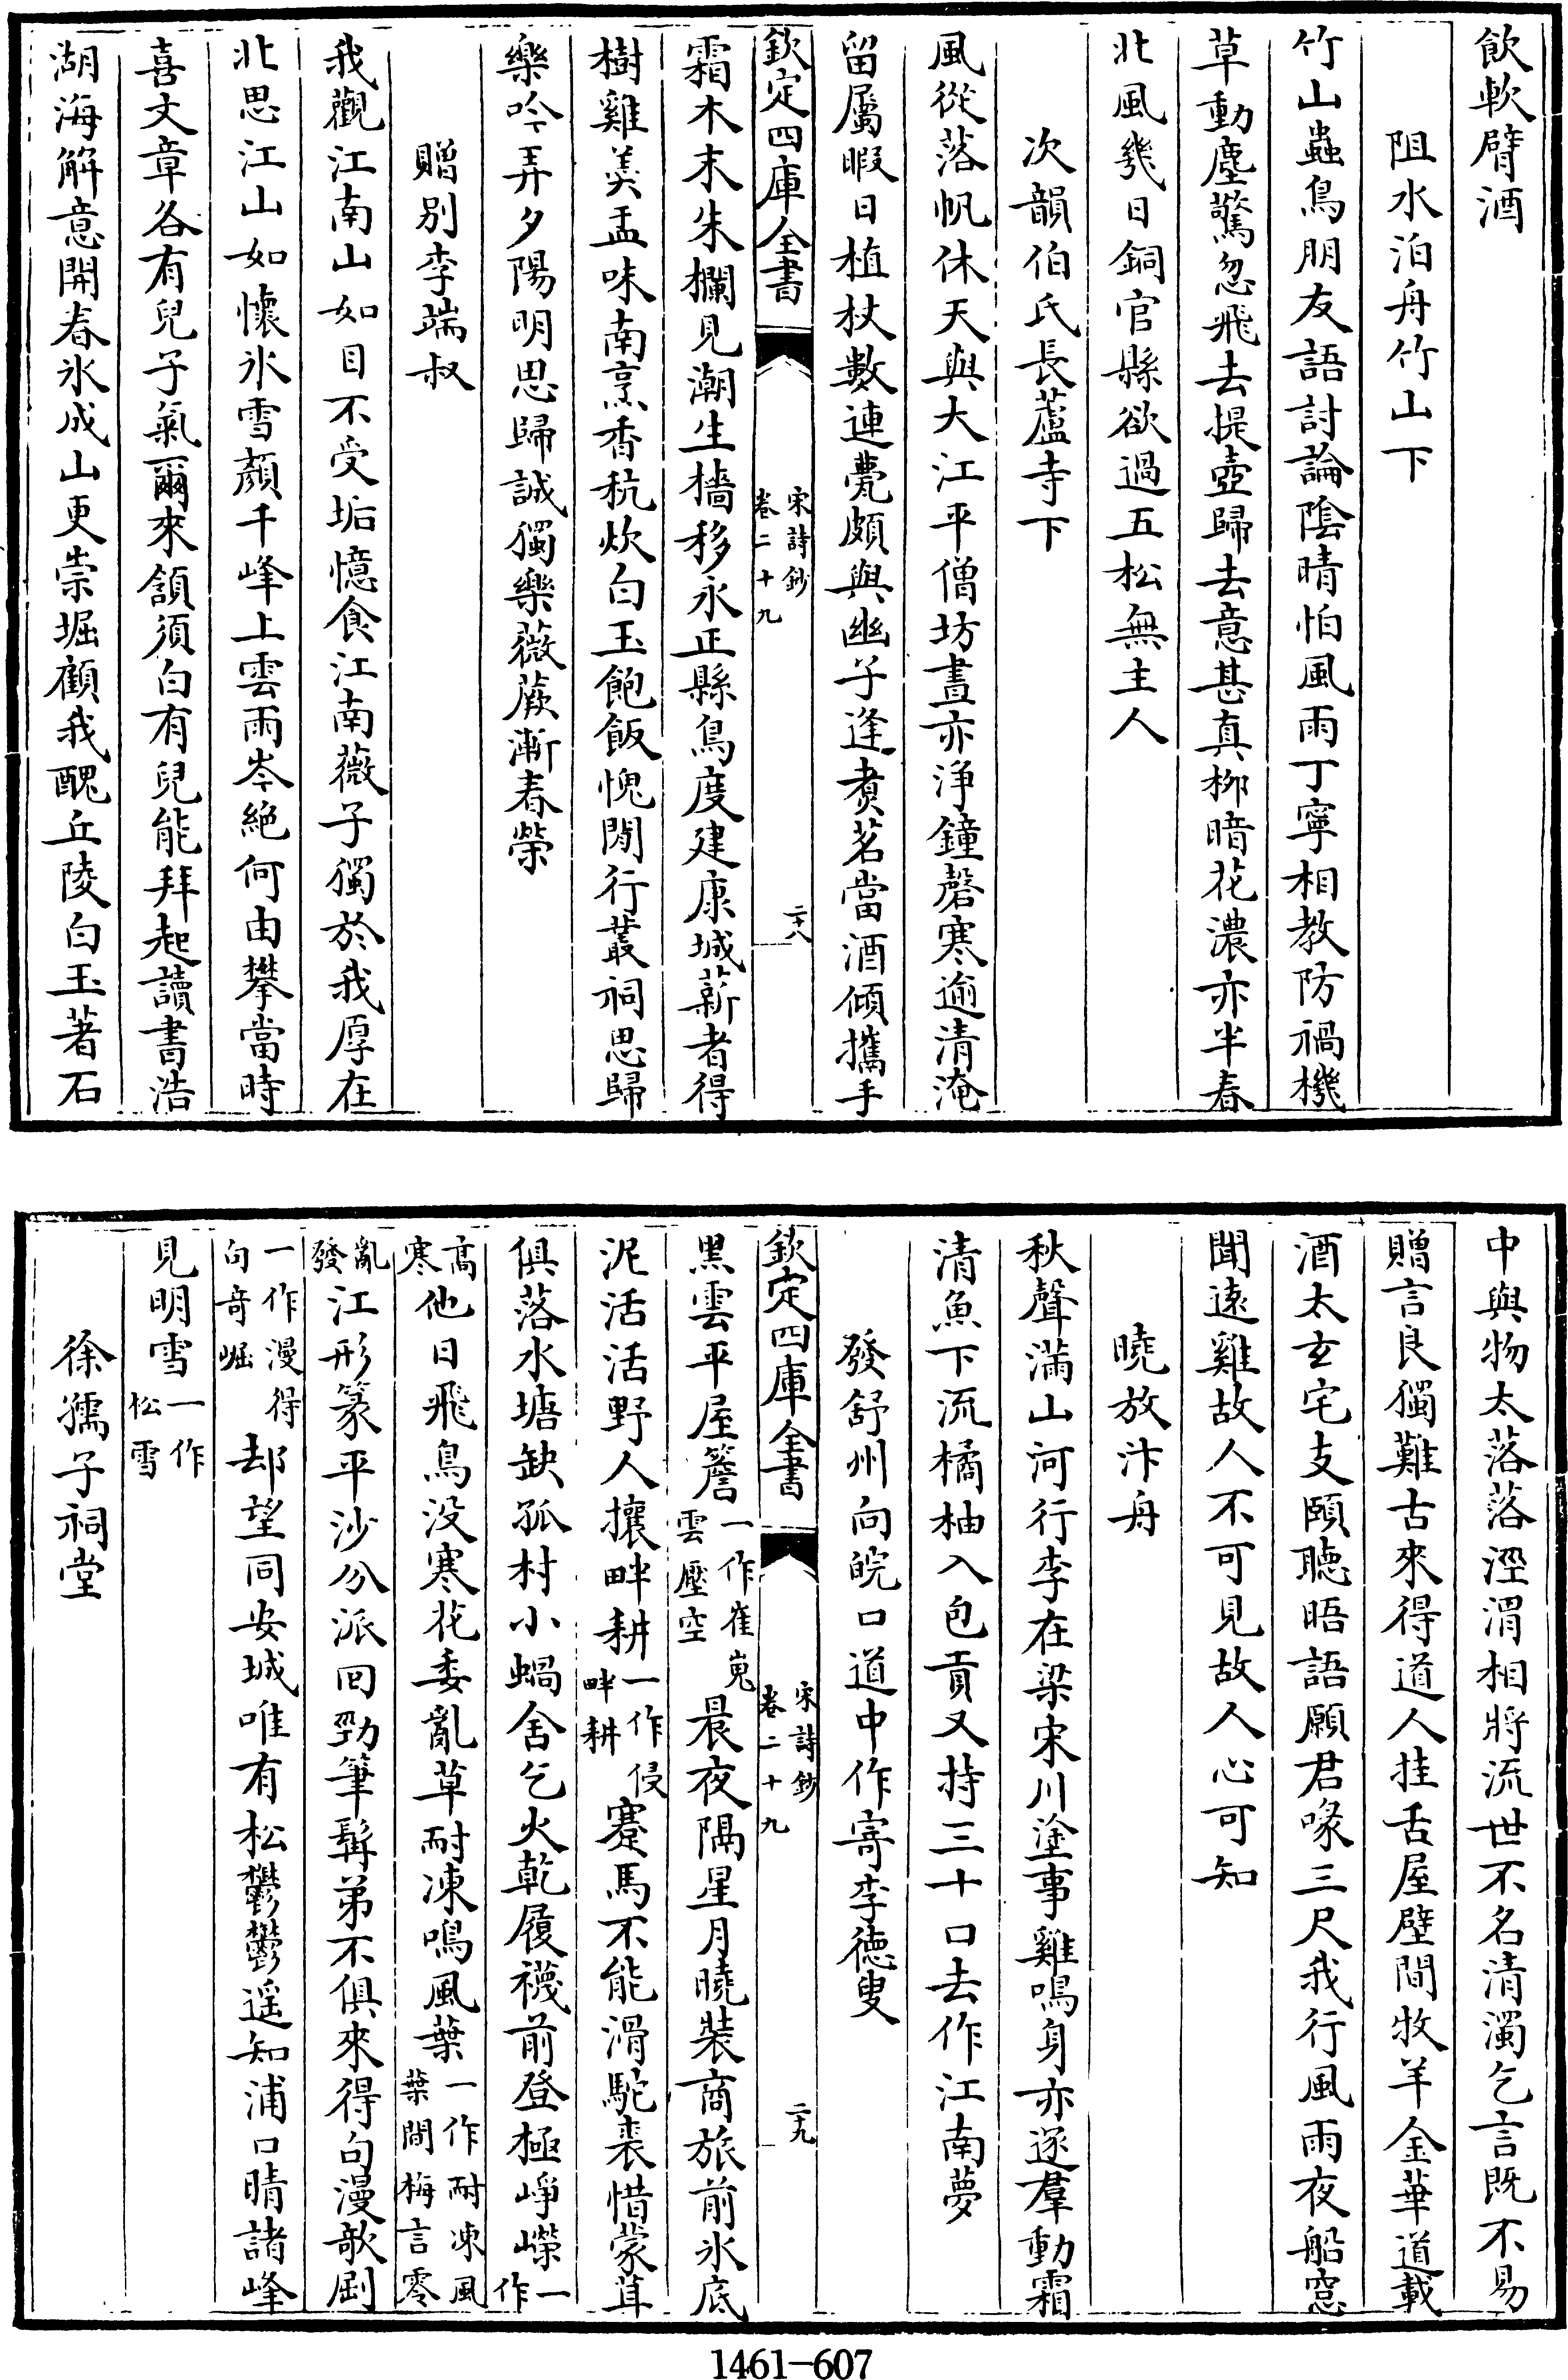 飲軟臂酒
阻水泊舟竹山下
竹山蟲鳥朋友語討論陰晴怕風雨丁寧相教防禍機
草動塵驚忽飛去提壺歸去意甚真柳暗花濃亦半春
北風幾日銅官縣欲過五松無主人
次韻伯氏長蘆寺下
風從落帆休天與大江平僧坊晝亦浄鐘磬寒逾清淹
留屬暇日植杖數連甍頗與幽子逢煑茗當酒傾攜手
欽定四庫全書
宋詩鈔
卷二十九
二十八
霜木末朱欄見潮生檣移永正縣鳥度建康城薪者得
樹雞羹盂味南烹香秔炊白玉飽飯愧閒行叢祠思歸
樂吟弄夕陽明思歸誠獨樂薇蕨漸春榮
贈别李端叔
我觀江南山如目不受垢憶食江南薇子獨於我厚在
北思江山如懷氷雪顏千峰上雲雨岑絕何由攀當時
喜文章各有兒子氣爾來頷須白有兒能拜起讀書浩
湖海解意開春氷成山更崇堀顧我醜丘陵白玉著石
中與物太落落涇渭相將流世不名清濁乞言既不易
贈言良獨難古來得道人挂舌屋壁間牧羊金華道載
酒太𤣥宅支頤聽晤語願君喙三尺我行風雨夜船窓
聞遠雞故人不可見故人心可知
曉放汴舟
秋聲滿山河行李在梁宋川塗事雞鳴身亦逐羣動霜
清魚下流橘柚入包貢又持三十口去作江南夢
發舒州向皖口道中作寄李徳叟
欽定四庫全書
宋詩鈔
卷二十九
二十九
黒雲平屋簷一作崔嵬雲壓空晨夜隔星月曉裝商旅前氷底
泥活活野人攘畔耕一作侵畔耕蹇馬不能滑駝裘惜蒙茸
俱落水塘缺孤村小蝸舍乞火乾履襪前登極崢嶸一作
高寒他日飛鳥没寒花委亂草耐凍鳴風葉一作耐凍風葉間梅言零
亂發江形篆平沙分派回勁筆髯弟不俱來得句漫歌剧
一作漫得句竒崛却望同安城唯有松鬱鬱遥知浦口晴諸峰
見明雪一作松雪
徐孺子祠堂
1461-607